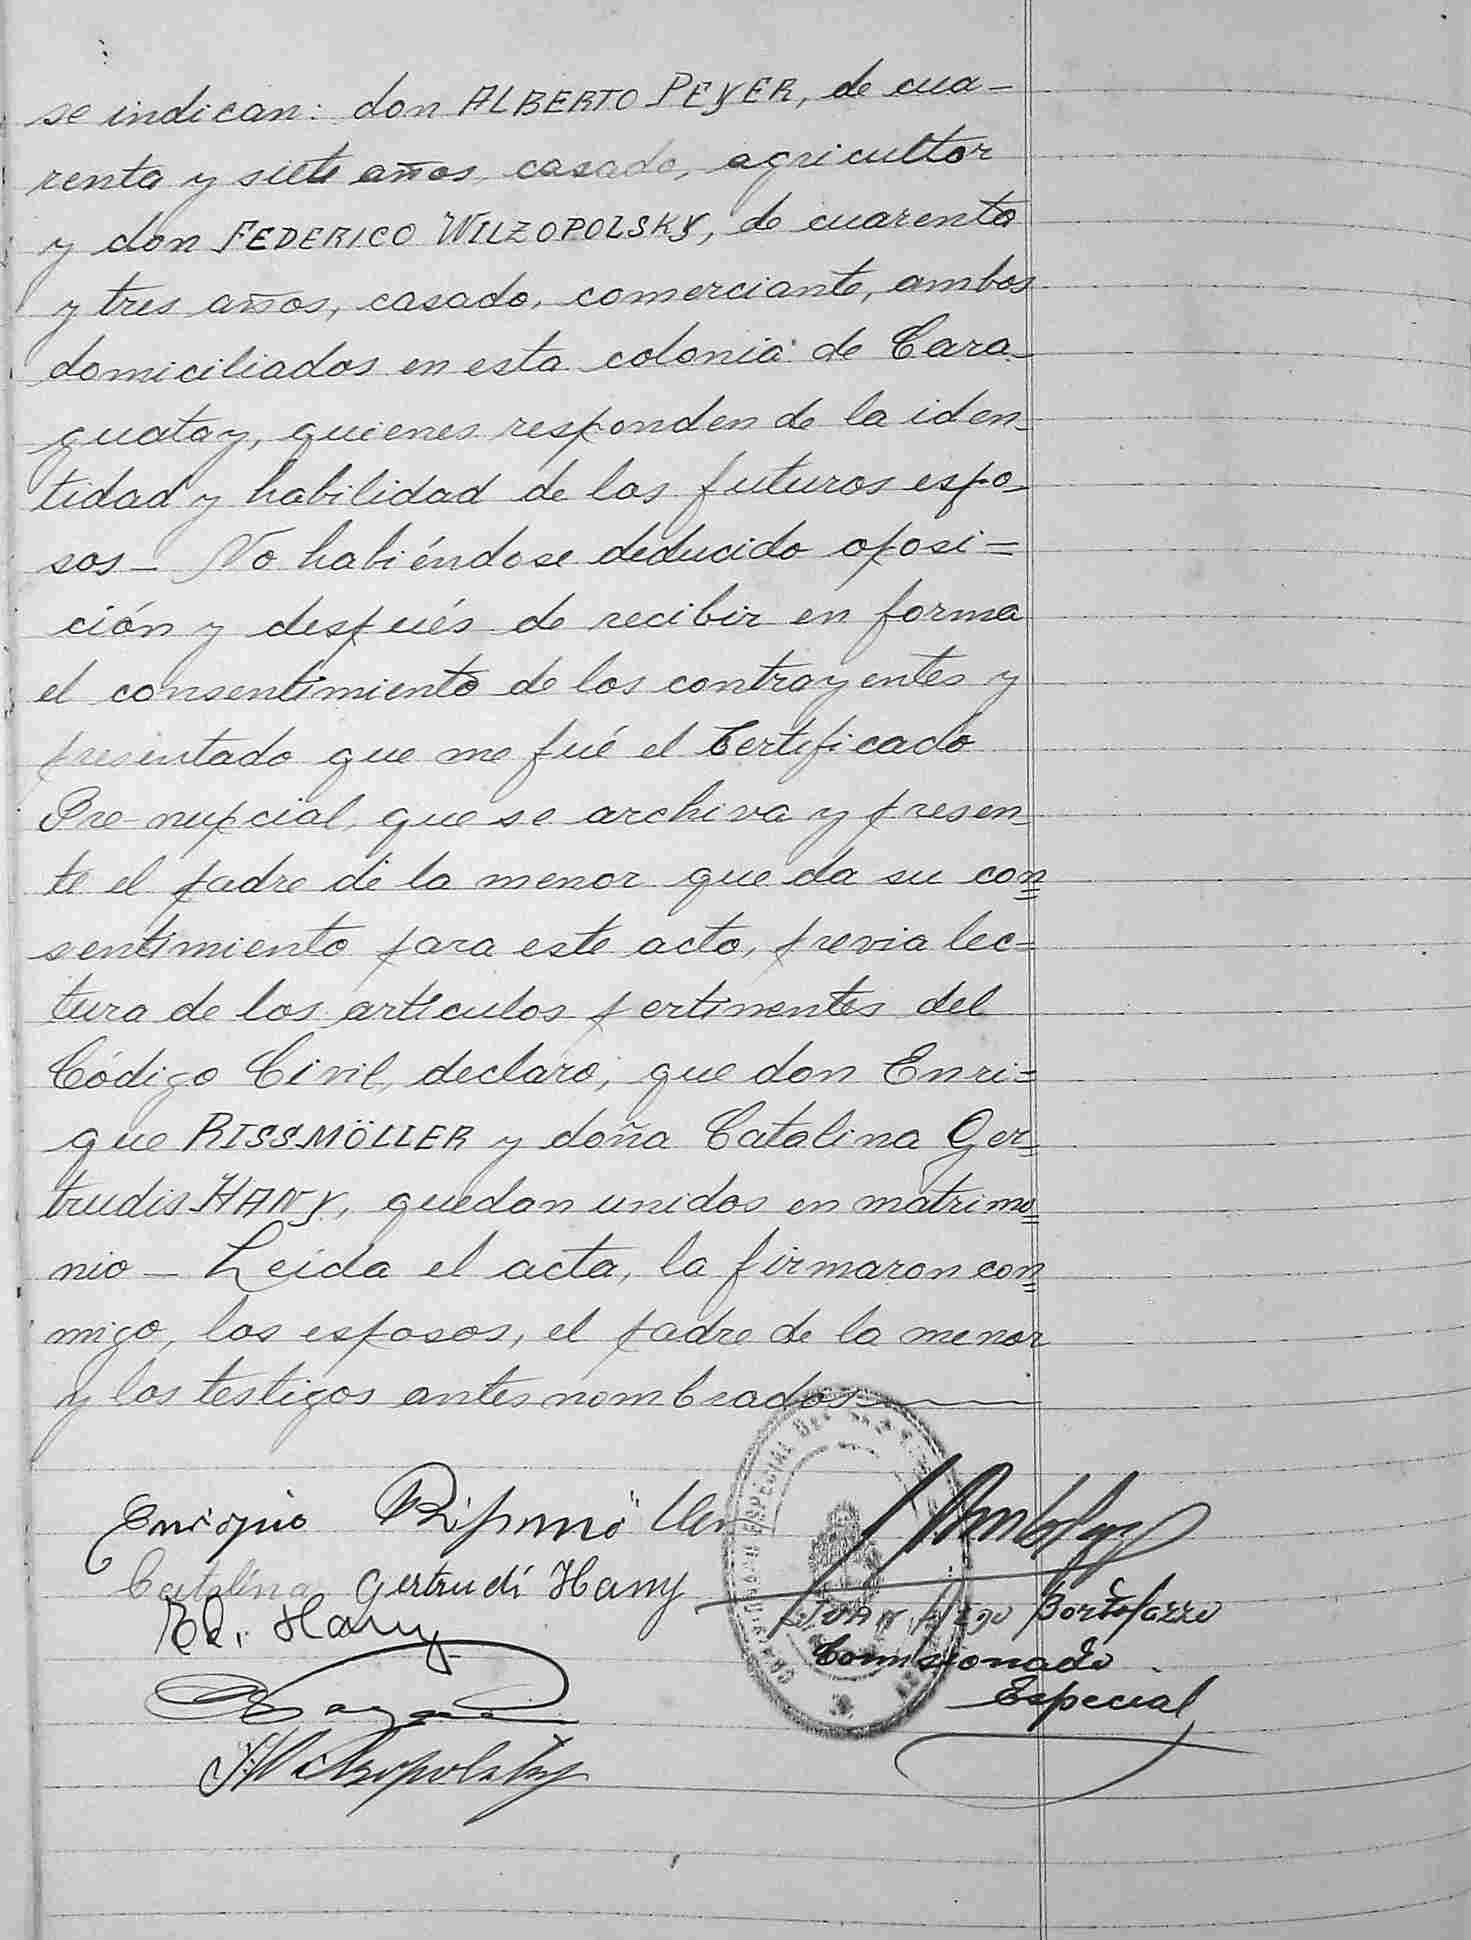 se indican: don ALBERTO PEYER, de cua-
renta y siete años casado, agricultor
y don FEDERICO WILZOPOLSKY, de cuarenta
y tres años, casado, comerciante, ambos
domiciliados en esta colonia de Cara-
guatay, quienes responden de la iden-
tidad y habilidad de los futuros espo-
sos - No habiéndose deducido oposi=
ción y después de recibir en forma
el consentimiento de los contrayentes y
presentado que me fué el Certificado
Pre-nupcial, que se archiva y presen-
te el padre de la menor que da su con=
sentimiento para este acto, previa lec=
tura de los artículos pertinentes del
Código Civil, declaro, que don Enri=
que RISSMÖLLER y doña Catalina Ger-
trudis HANY, quedan unidos en matrimo=
nio - Leída el acta, la firmaron con=
migo, los esposos, el padre de la menor
y los testigos antes nombrados
Enrique Rißmöller
Catalina Gertrudi Hany
Ed. Hany
JUAN
Comisionado
Especial
ESPECIAL DEL